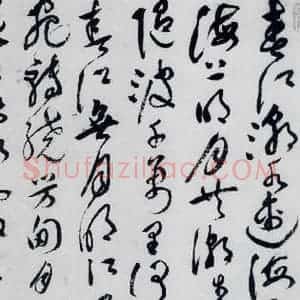 春江潮水連海
海上明月共潮生
隨波千萬里何
春江無月明江
宛轉繞芳甸月
ShufaZiliao.com